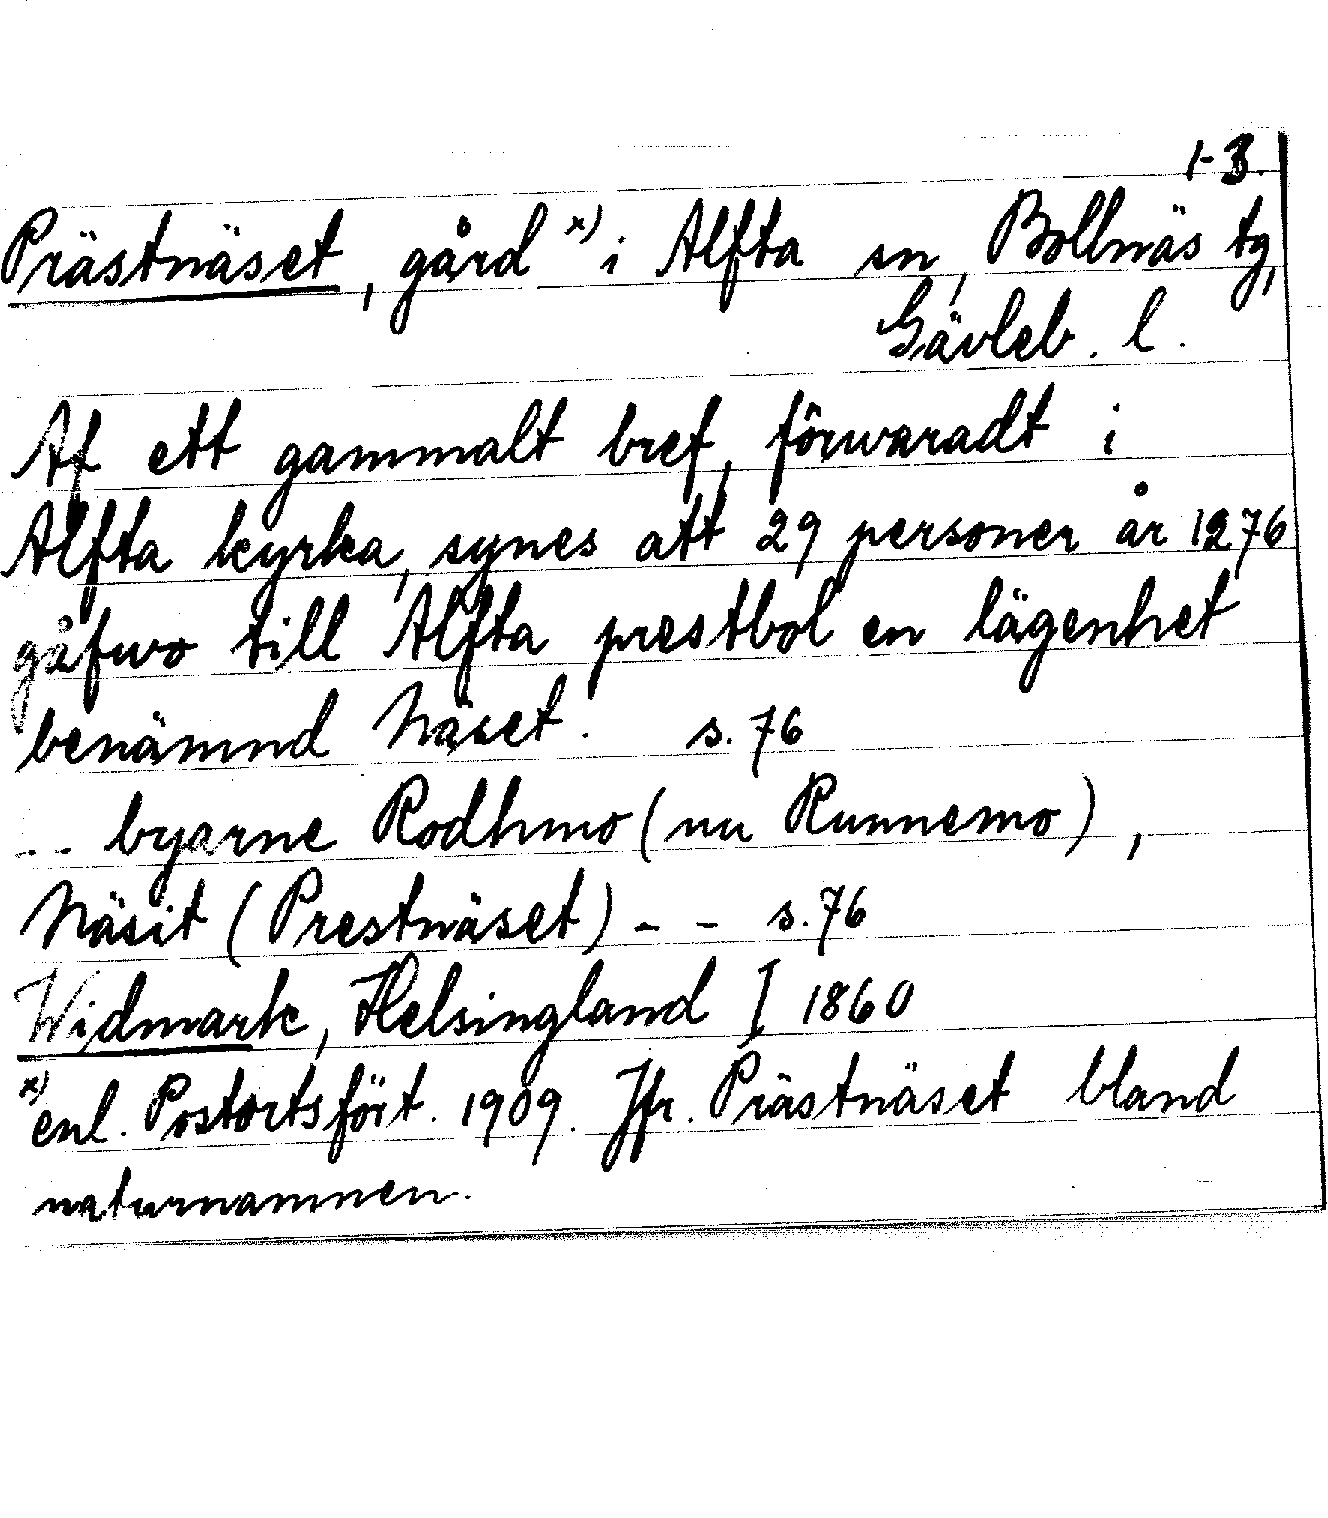 1-3.
Prästnäset, gård x) i Alfta sn, Bollnäs tg,
Gävleb. l.
Af ett gammalt bref, förwaradt i
Alfta kyrka, synes att 29 personer år 1276
gåfwo till Alfta prestbol en lägenhet
benämnd Näset. s. 76
.. byarne Rodhmo (nu Runnemo),
Näsit (Prestnäset) - - s. 76
Widmark, Helsingland I 1860
x) enl. Postortsfört. 1909. Jfr. Prästnäset bland
naturnamnen.